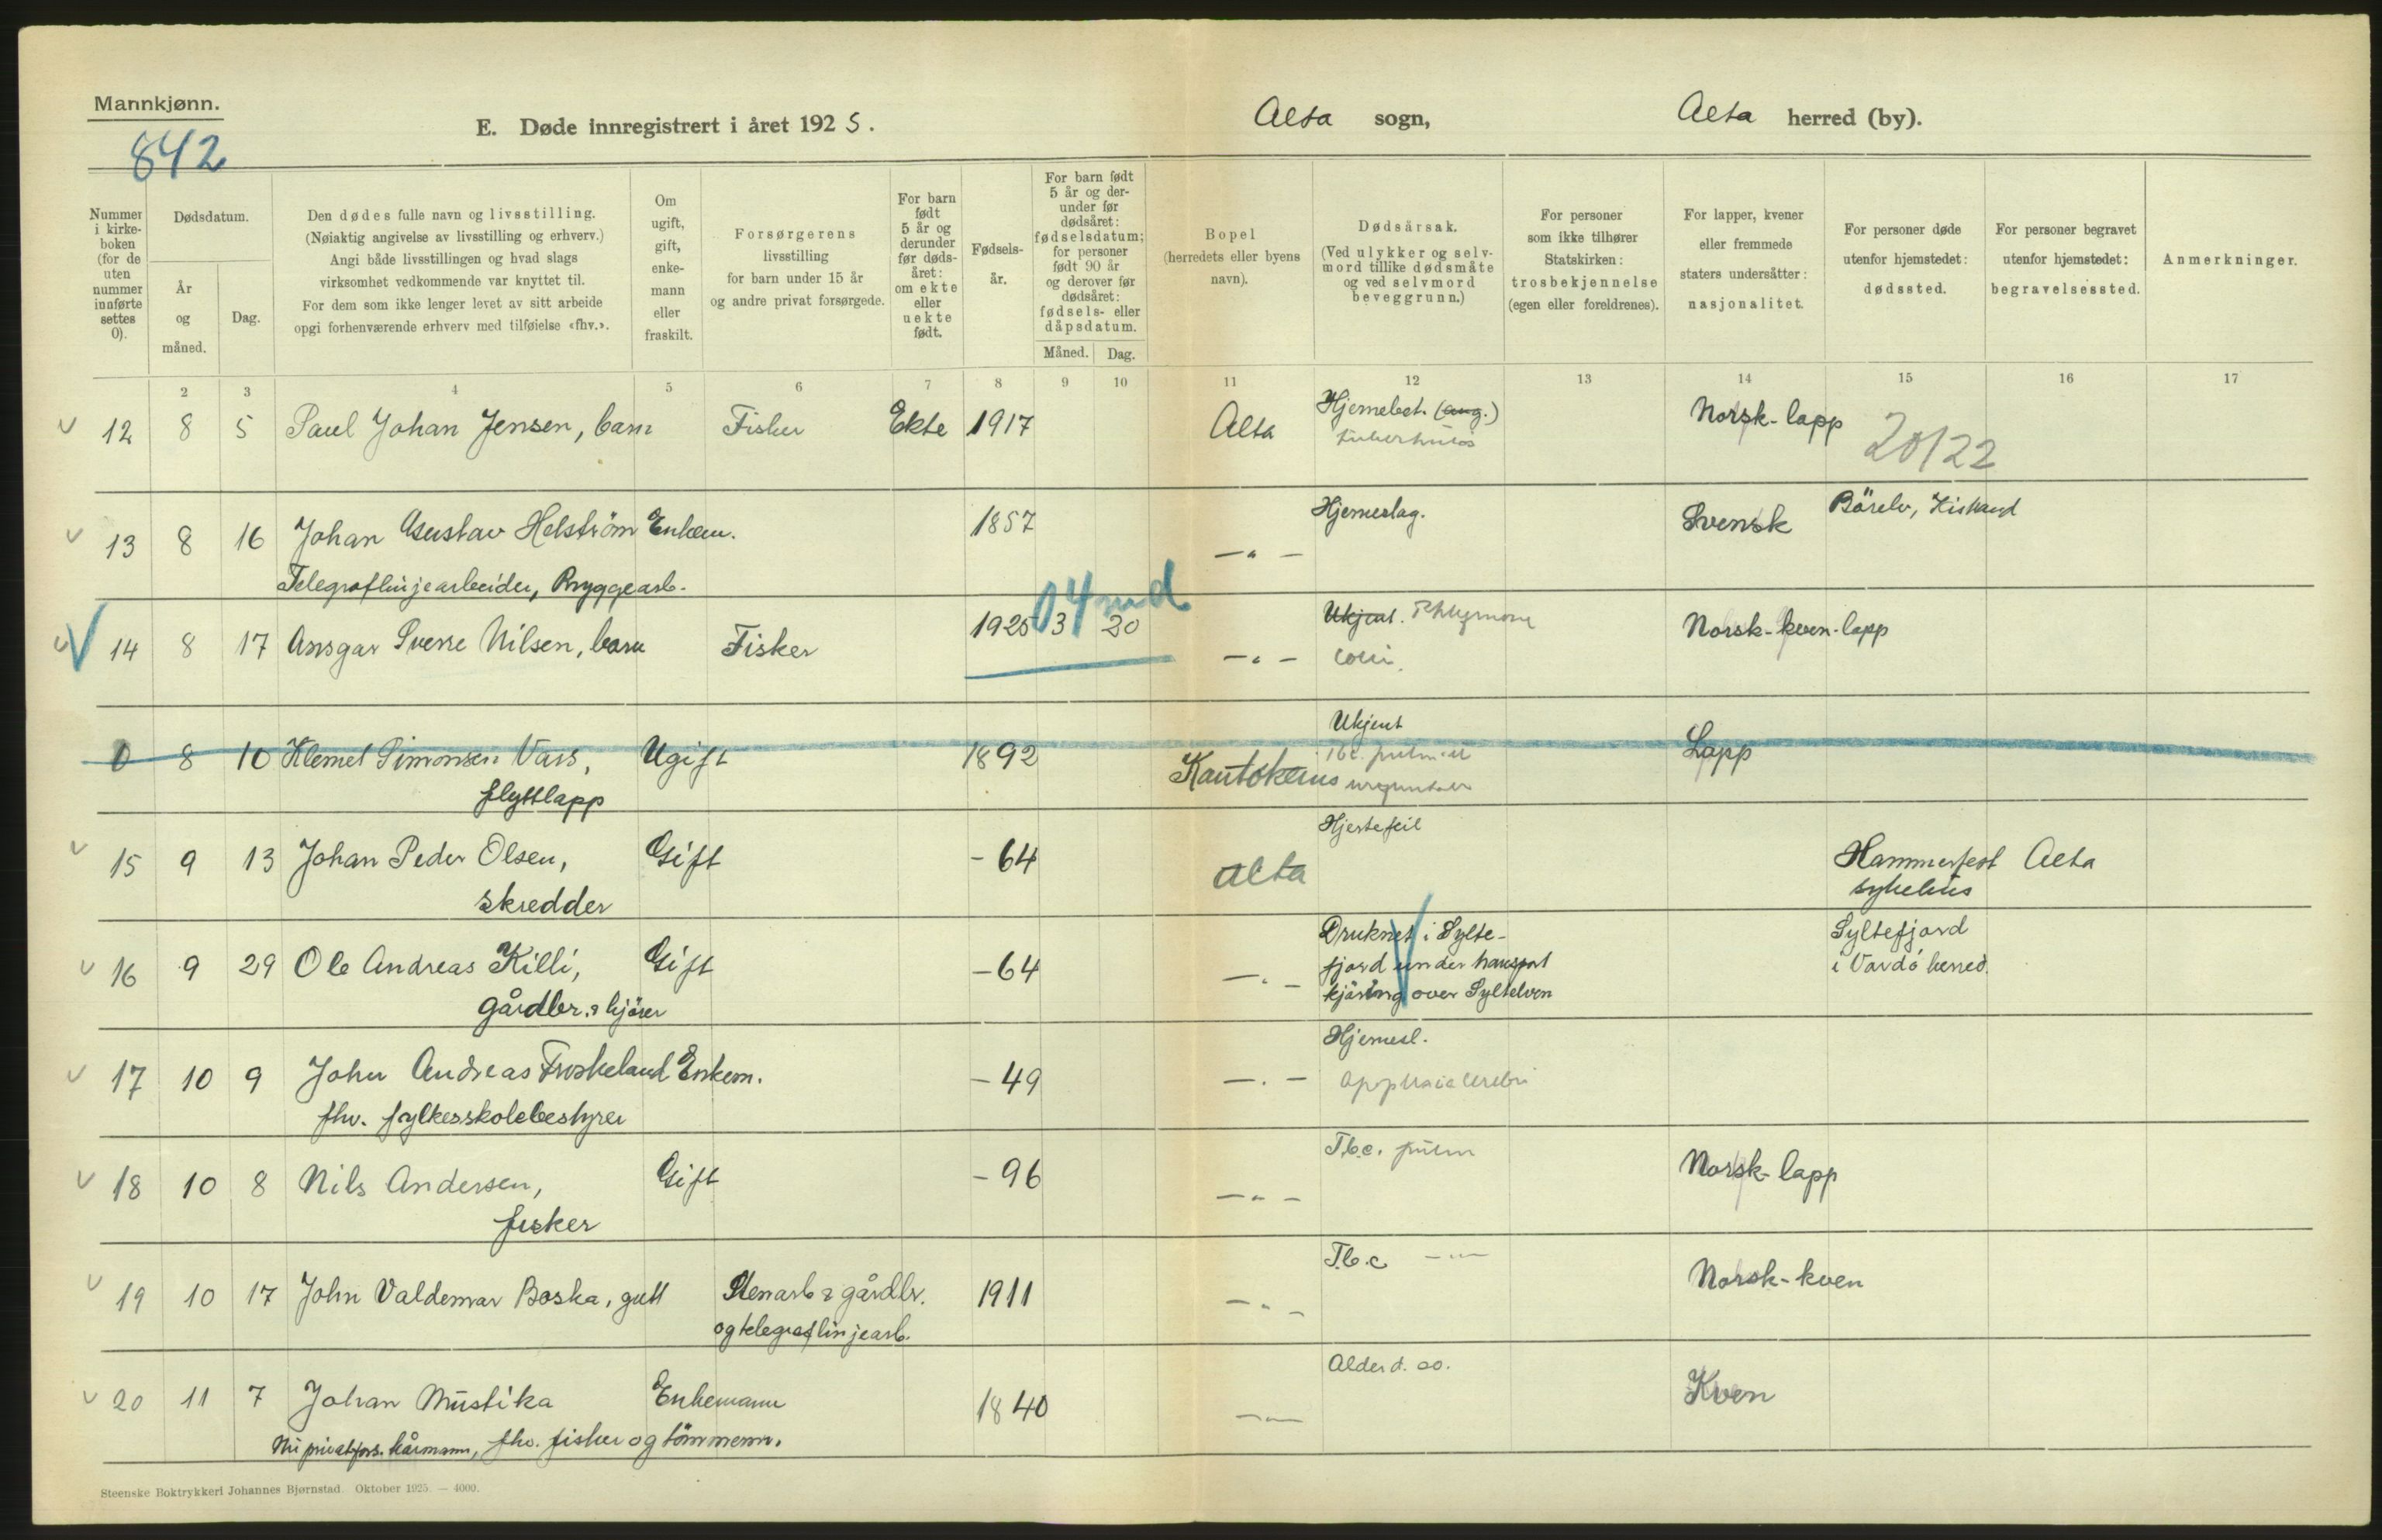 Mannkjønn.
842
E. Døde innregistrert i året 1925.
Alta sogn,
Alta herred (by).
Nummer i kirkeboken (for de uten nummer innførte settes 0).
Dødsdatum.
År og måned.
Dag.
Den dødes fulle navn og livsstilling.
(Nøiaktig angivelse av livsstilling og erhverv.)
Angi både livsstillingen og hvad slags
virksomhet vedkommende var knyttet til.
For dem som ikke lenger levet av sitt arbeide
opgi forhenværende erhverv med tilføielse «fhv.».
Om ugift, gift, enkemann eller fraskilt.
Forsørgerens
livsstilling
for barn under 15 år
og andre privat forsørgede.
For barn født 5 år og derunder før dødsåret: om ekte eller uekte født.
Fødselsår.
For barn født 5 år og derunder før dødsåret: fødselsdatum; for personer født 90 år og derover før dødsåret: fødsels- eller dåpsdatum.
Måned. Dag.
Bopel
(herredets eller byens
navn).
Dødsårsak.
(Ved ulykker og selvmord tillike dødsmåte og ved selvmord beveggrunn.)
For personer
som ikke tilhører
Statskirken:
trosbekjennelse
(egen eller foreldrenes).
For lapper, kvener
eller fremmede
staters undersåtter:
nasjonalitet.
For personer døde
utenfor hjemstedet:
dødssted.
For personer begravet
utenfor hjemstedet:
begravelsessted.
Anmerkninger.
2 3 4 5 6 7 8 9 10 11 12 13 14 15 16 17
12 8 5 Paul Johan Jensen, barn Fisker Ekte 1917 Alta Hjernebet. (ang.) Norsk-lapp
tuberkulös
20/22
13 8 16 Johan Gustav Helström Enkem. 1857 —"— Hjerneslag. Svensk Börselv, Kistrand
Telegraflinjearbeider, Bryggearb.
04 md
14 8 17 Ansgar Sverre Nilsen, barn Fisker 1925 3 20 —"— Ukjent. Phlegmone Norsk-kven-lapp
colli.
0 8 10 Klemet Simonsen Vars, Ugift 1892 Kautokeino Ukjent Lapp
Tbc. pulm.
flyttlapp
15 9 13 Johan Peder Olsen, Gift -64 Alta Hjertefeil Hammerfest Alta
skredder sykehus
16 9 29 Ole Andreas Killi, Gift -64 —"— Druknet i Sylte- Syltefjord
fjord under transport i Vardö herred.
gårdbr. & kjörer kjöring over Syltelven
17 10 9 John Andreas Froskeland Enkem. -49 —"— Hjernesl.
fhv. fylkesskolebestyrer cerebri
18 10 8 Nils Andersen, Gift -96 —"— T.b.c. pulm Norsk-lapp
fisker
19 10 17 John Valdemar Boska, gutt Stenarb & gårdbr. 1911 —"— T.b.c —"— Norsk-kven
og telegraflinjearb.
20 11 7 Johan Mustika Enkemann 1840 —"— Alderd. Kven
Nu privatfors. kårmann, fhv. fisker og tömmerm.
Steenske Boktrykkeri Johannes Bjørnstad. Oktober 1925. — 4000.